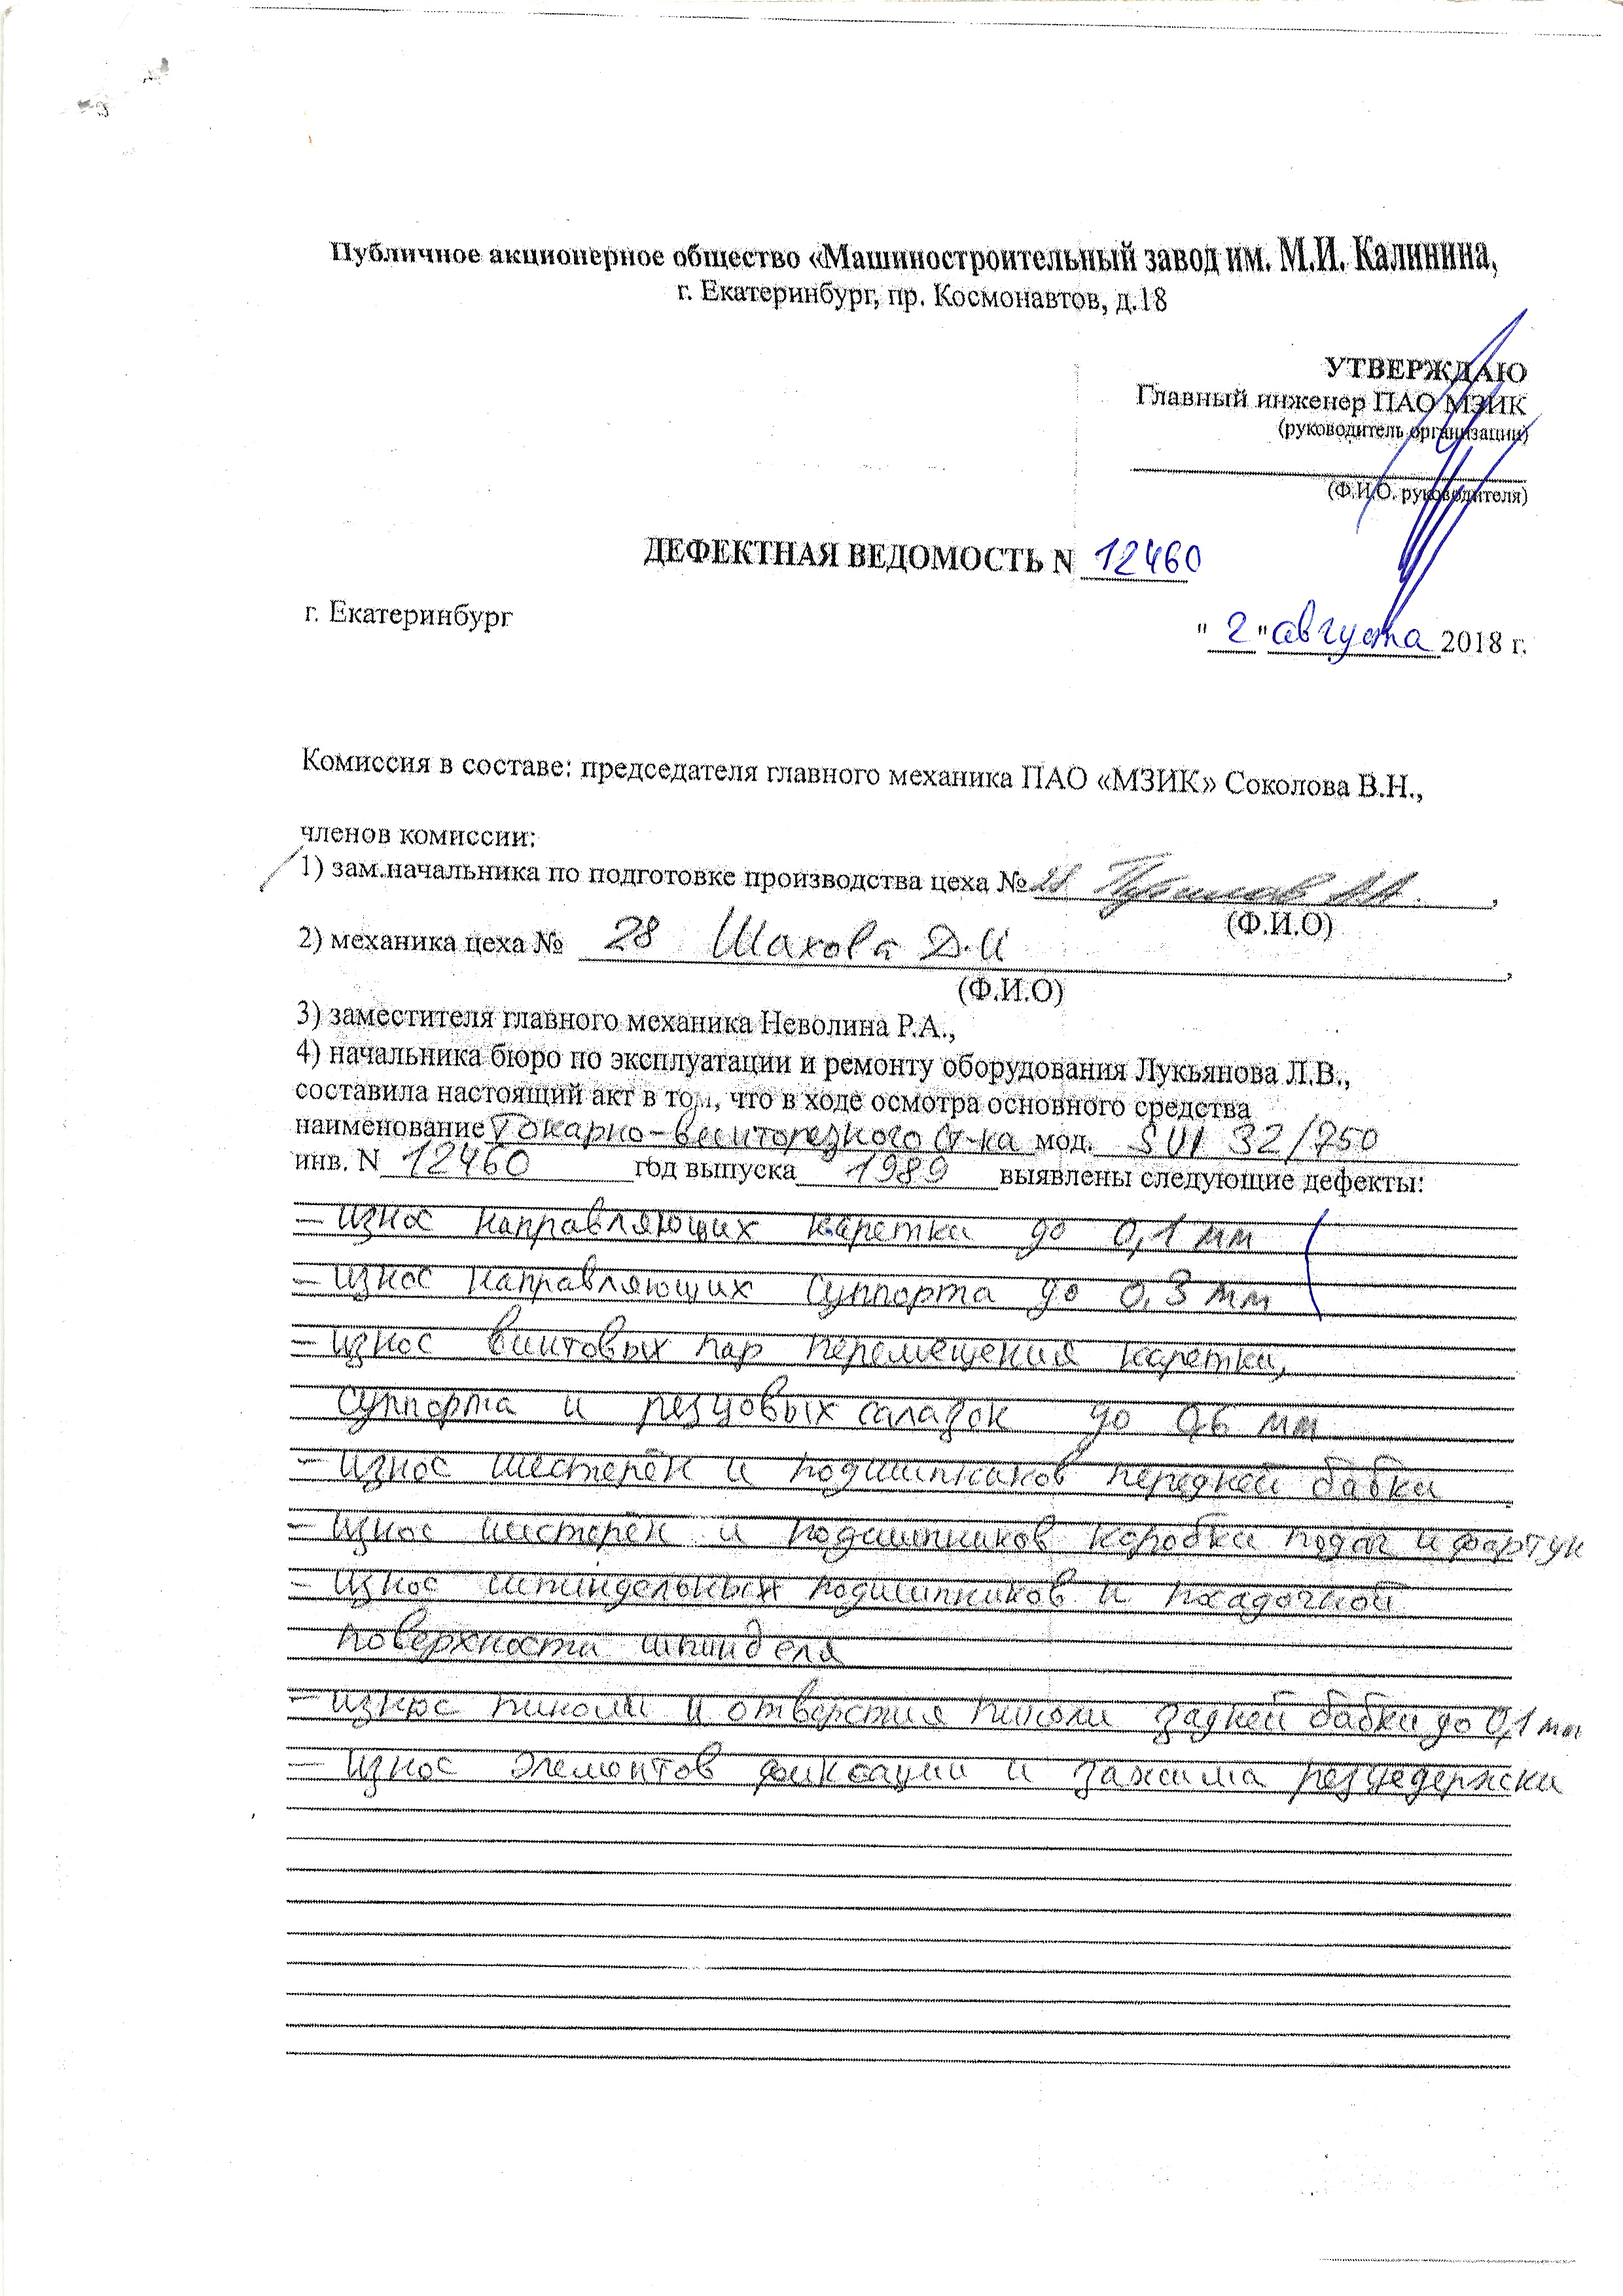 Публичное акционерное общество «Машиностроительный завод им. М.И. Калинина,
г. Екатеринбург, пр. Космонавтов, д.18
УТВЕРЖДАЮ
Главный инженер ПАО МЗИК
(руководитель организации)
(Ф.И.О. руководителя)
ДЕФЕКТНАЯ ВЕДОМОСТЬ N 12460
г. Екатеринбург
"2" августа 2018 г.
Комиссия в составе: председателя главного механика ПАО «МЗИК» Соколова В.Н.,
членов комиссии:
1) зам.начальника по подготовке производства цеха № 28 ,
(Ф.И.О)
2) механика цеха № 28 Шахова Д.И ,
(Ф.И.О)
3) заместителя главного механика Неволина Р.А.,
4) начальника бюро по эксплуатации и ремонту оборудования Лукьянова Л.В.,
составила настоящий акт в том, что в ходе осмотра основного средства
наименование Токарно-винторезного ст-ка мод. SUI 32/750
инв. N 12460 год выпуска 1989 выявлены следующие дефекты:
- износ направляющих каретки до 0,1 мм
- износ направляющих суппорта до 0,3 мм
- износ винтовых пар перемещения каретки,
суппорта и резцовых салазок до 0,6 мм
- износ шестерён и подшипников передней бабки
- износ шестерён и подшипников коробки подач и фартук
- износ шпиндельных подшипников и посадочной
поверхности шпинделя
- износ пиноли и отверстия пиноли задней бабки до 0,1 мм
- износ элементов фиксации и зажима резцедержки